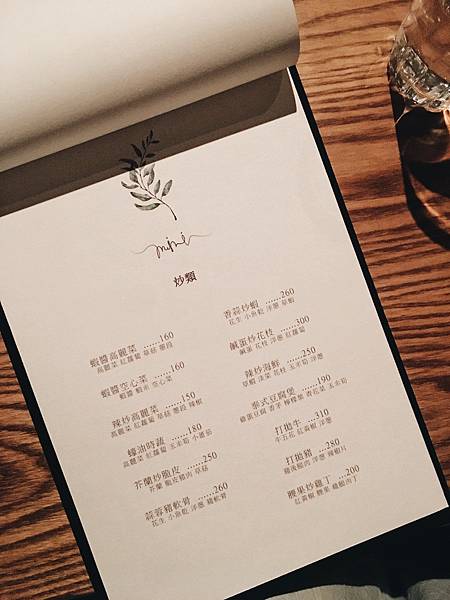 mimi
炒類
蝦醬高麗菜......160
高麗菜 紅蘿蔔 草菇 蔥段
蝦醬空心菜......160
蝦醬 蝦米 空心菜
辣炒高麗菜......150
高麗菜 紅蘿蔔 草菇 蔥段 辣椒
蠔油時蔬......180
高麗菜 紅蘿蔔 玉米筍 小蕃茄
芥蘭炒脆皮......250
芥蘭 脆皮豬肉 草菇
蒜蓉豬軟骨......260
花生 小魚乾 洋蔥 豬軟骨
香蒜炒蝦......260
花生 小魚乾 洋蔥 草蝦
鹹蛋炒花枝......300
鹹蛋 花枝 洋蔥 紅蘿蔔
辣炒海鮮......250
草蝦 洋菜 花枝 玉米筍 洋蔥
泰式豆腐煲......190
雞蛋豆腐 香茅 檸檬葉 杏花菜 玉米筍
打拋牛......310
牛五花 紅黃椒 洋蔥
打拋豬......280
豬後腿肉 洋蔥 辣椒片
腰果炒雞丁......200
紅黃椒 腰果 雞腿肉丁